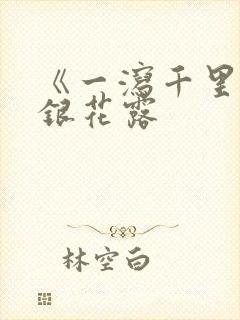 《一泻千里
银花露
林空白